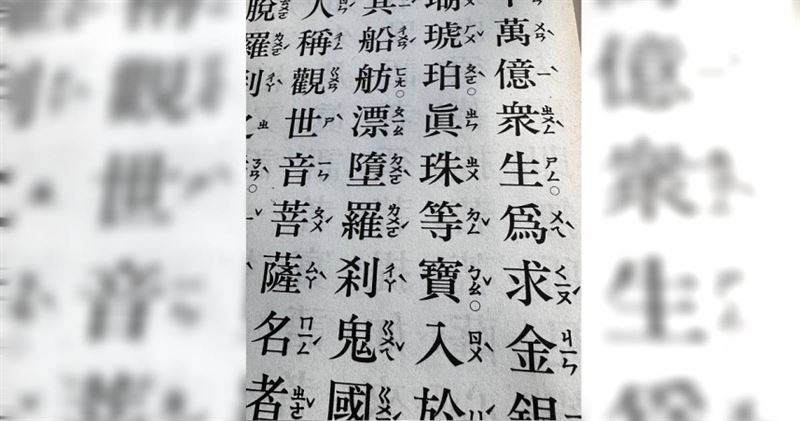 萬億衆生。爲求金銀
瑚琥珀。眞珠等寶。入於
其船舫。漂墮羅刹鬼國
人稱觀世音菩薩名者
脫羅刹之